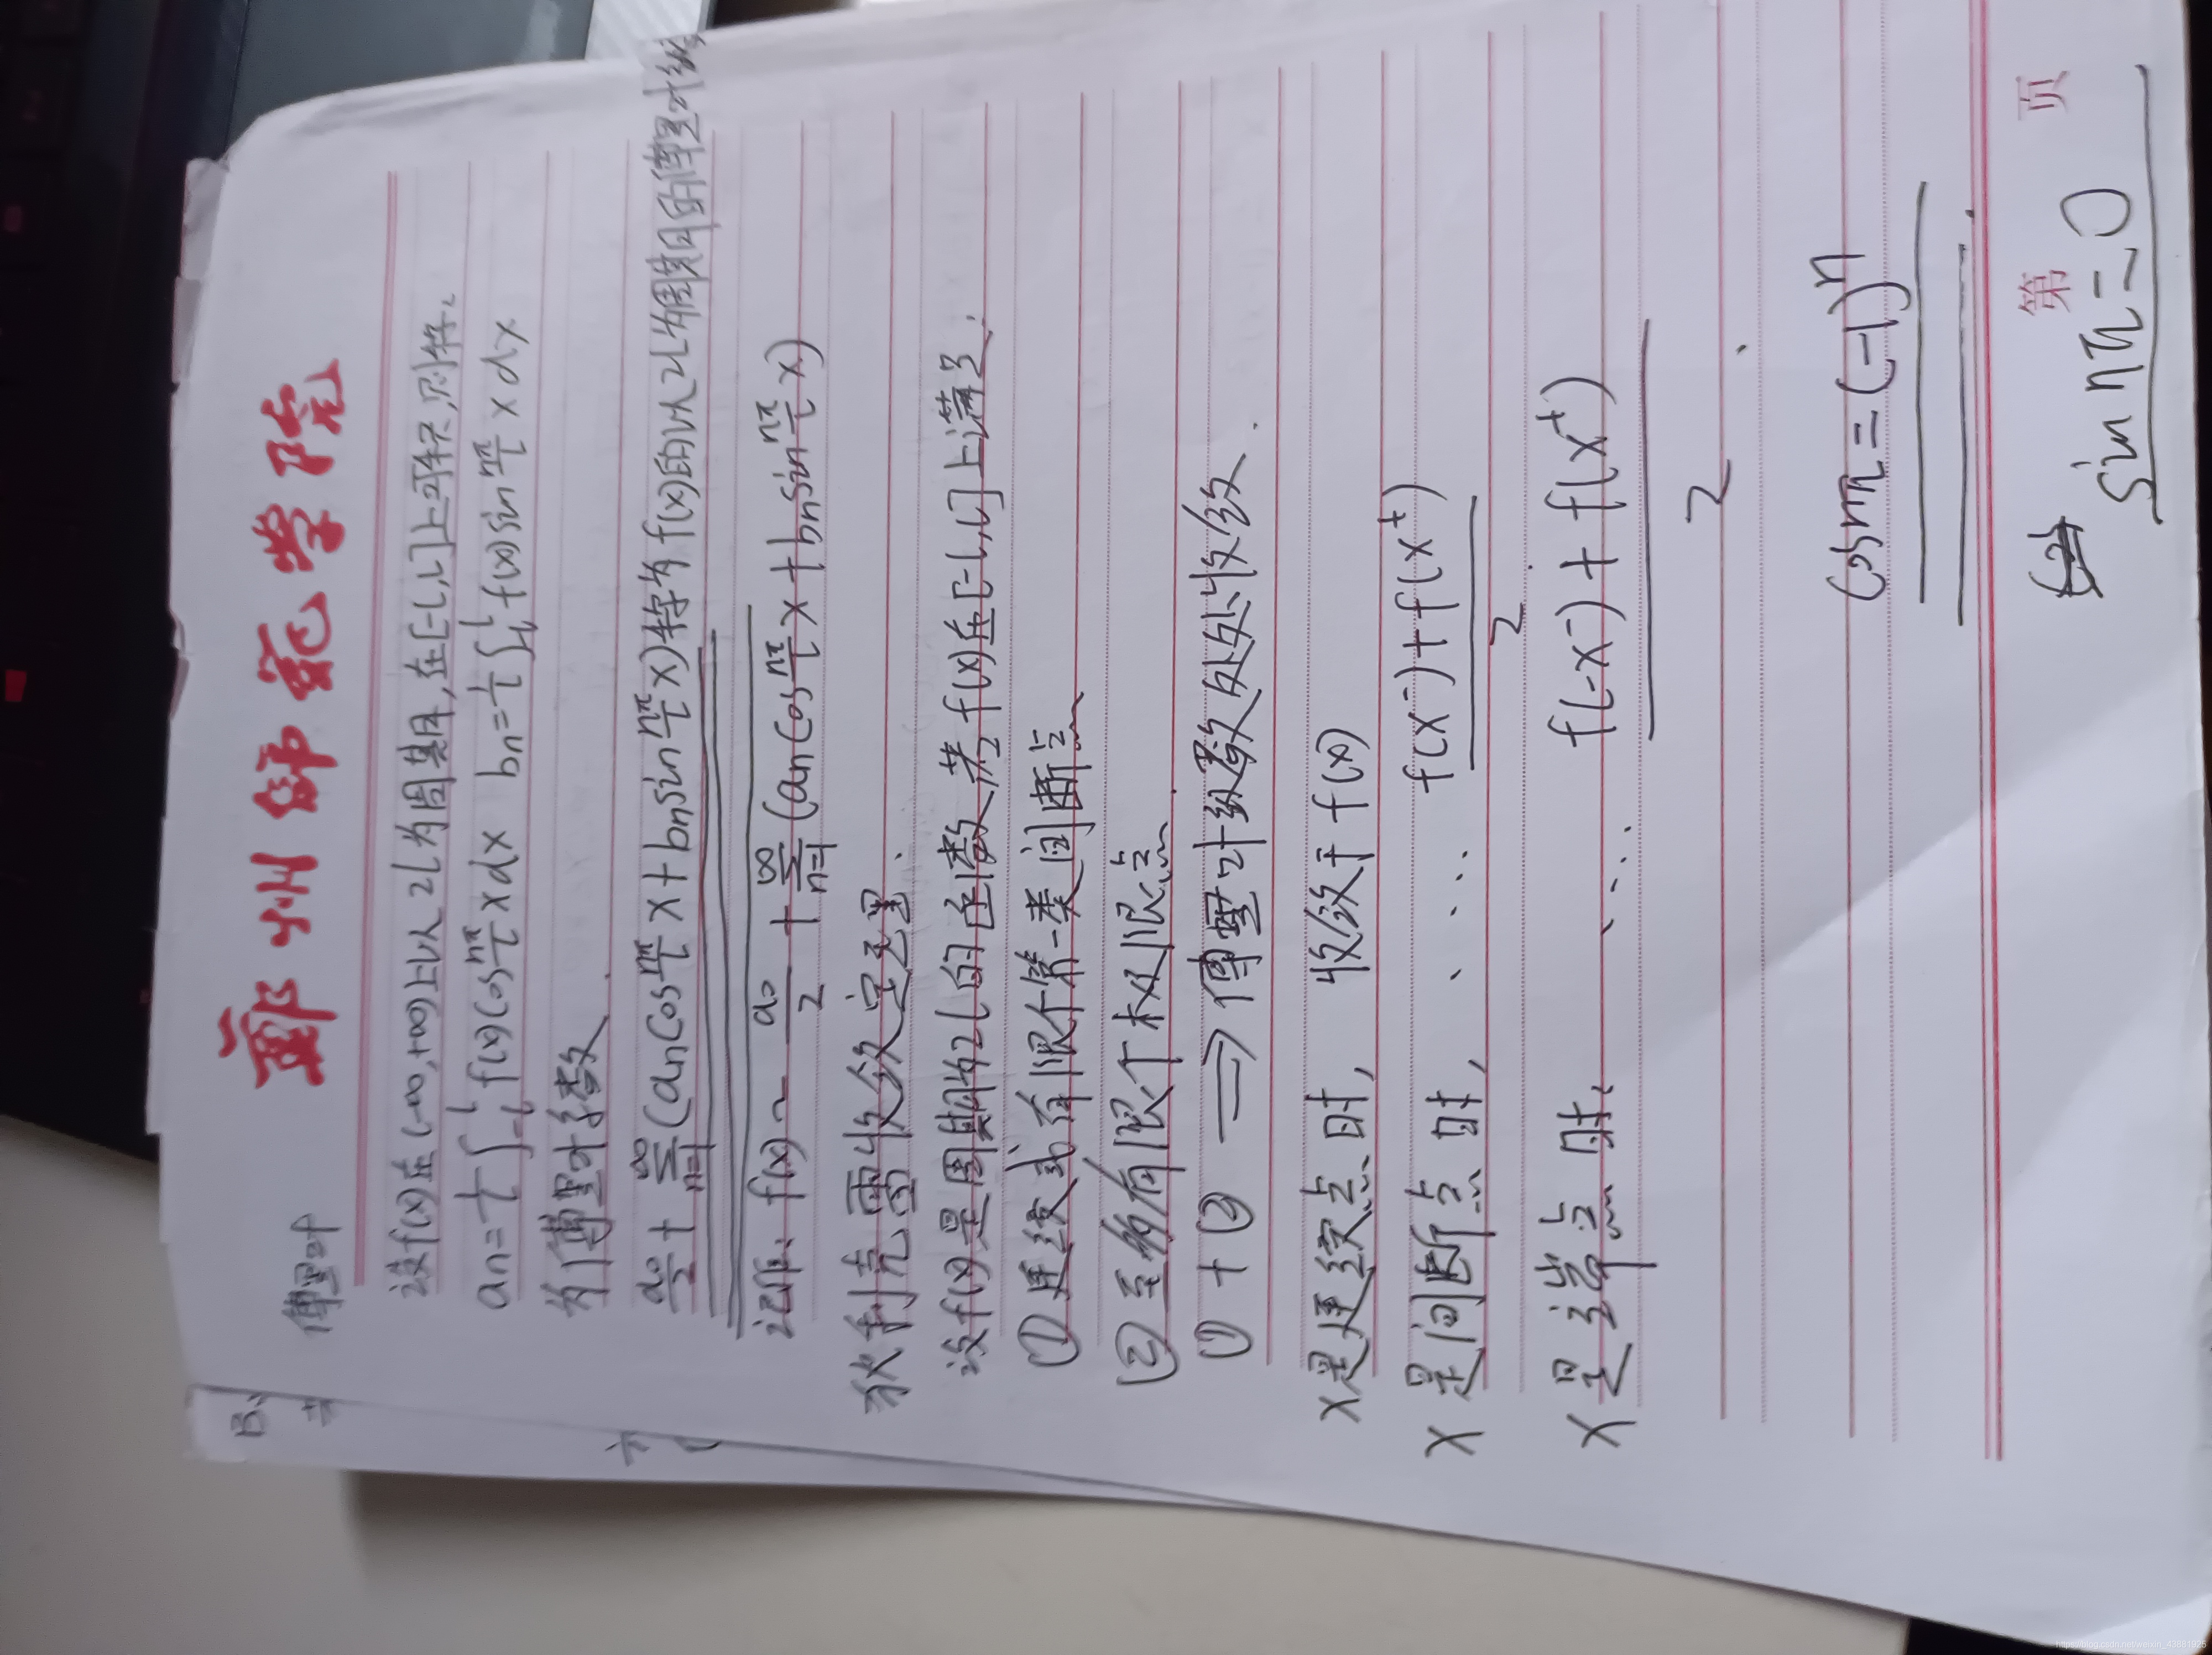 鄞州师范学院
傅里叶
设f(x)在(-∞,+∞)上以2l为周期,在[-l,l]上可积,则称.
an=1/l∫_{-l}^{l}f(x)cos nπ/l xdx bn=1/l∫_{-l}^{l}f(x)sin nπ/l xdx
为傅里叶系数.
a0/2+∑_{n=1}^{∞}(ancos nπ/l x+bnsin nπ/l x)称为f(x)的以2l为周期的傅里叶级
记作、f(x)~a0/2+∑_{n=1}^{∞}(ancos nπ/l x+bnsin nπ/l x)
狄利克雷收敛定理.
设f(x)是周期为2l的函数,若f(x)在[-l,l]上满足:
①连续或有限个第一类间断点
②至多有限个极限点.
①+② ⇒ 傅里叶级数处处收敛.
x是连续点时, 收敛于f(x)
x是间断点时, 、... (f(x⁻)+f(x⁺))/2.
x是端点时、 、... (f(-x⁻)+f(x⁺))/2.
cosnπ=(-1)ⁿ
第 页
sin nπ=0
https://blog.csdn.net/weixin_43881925